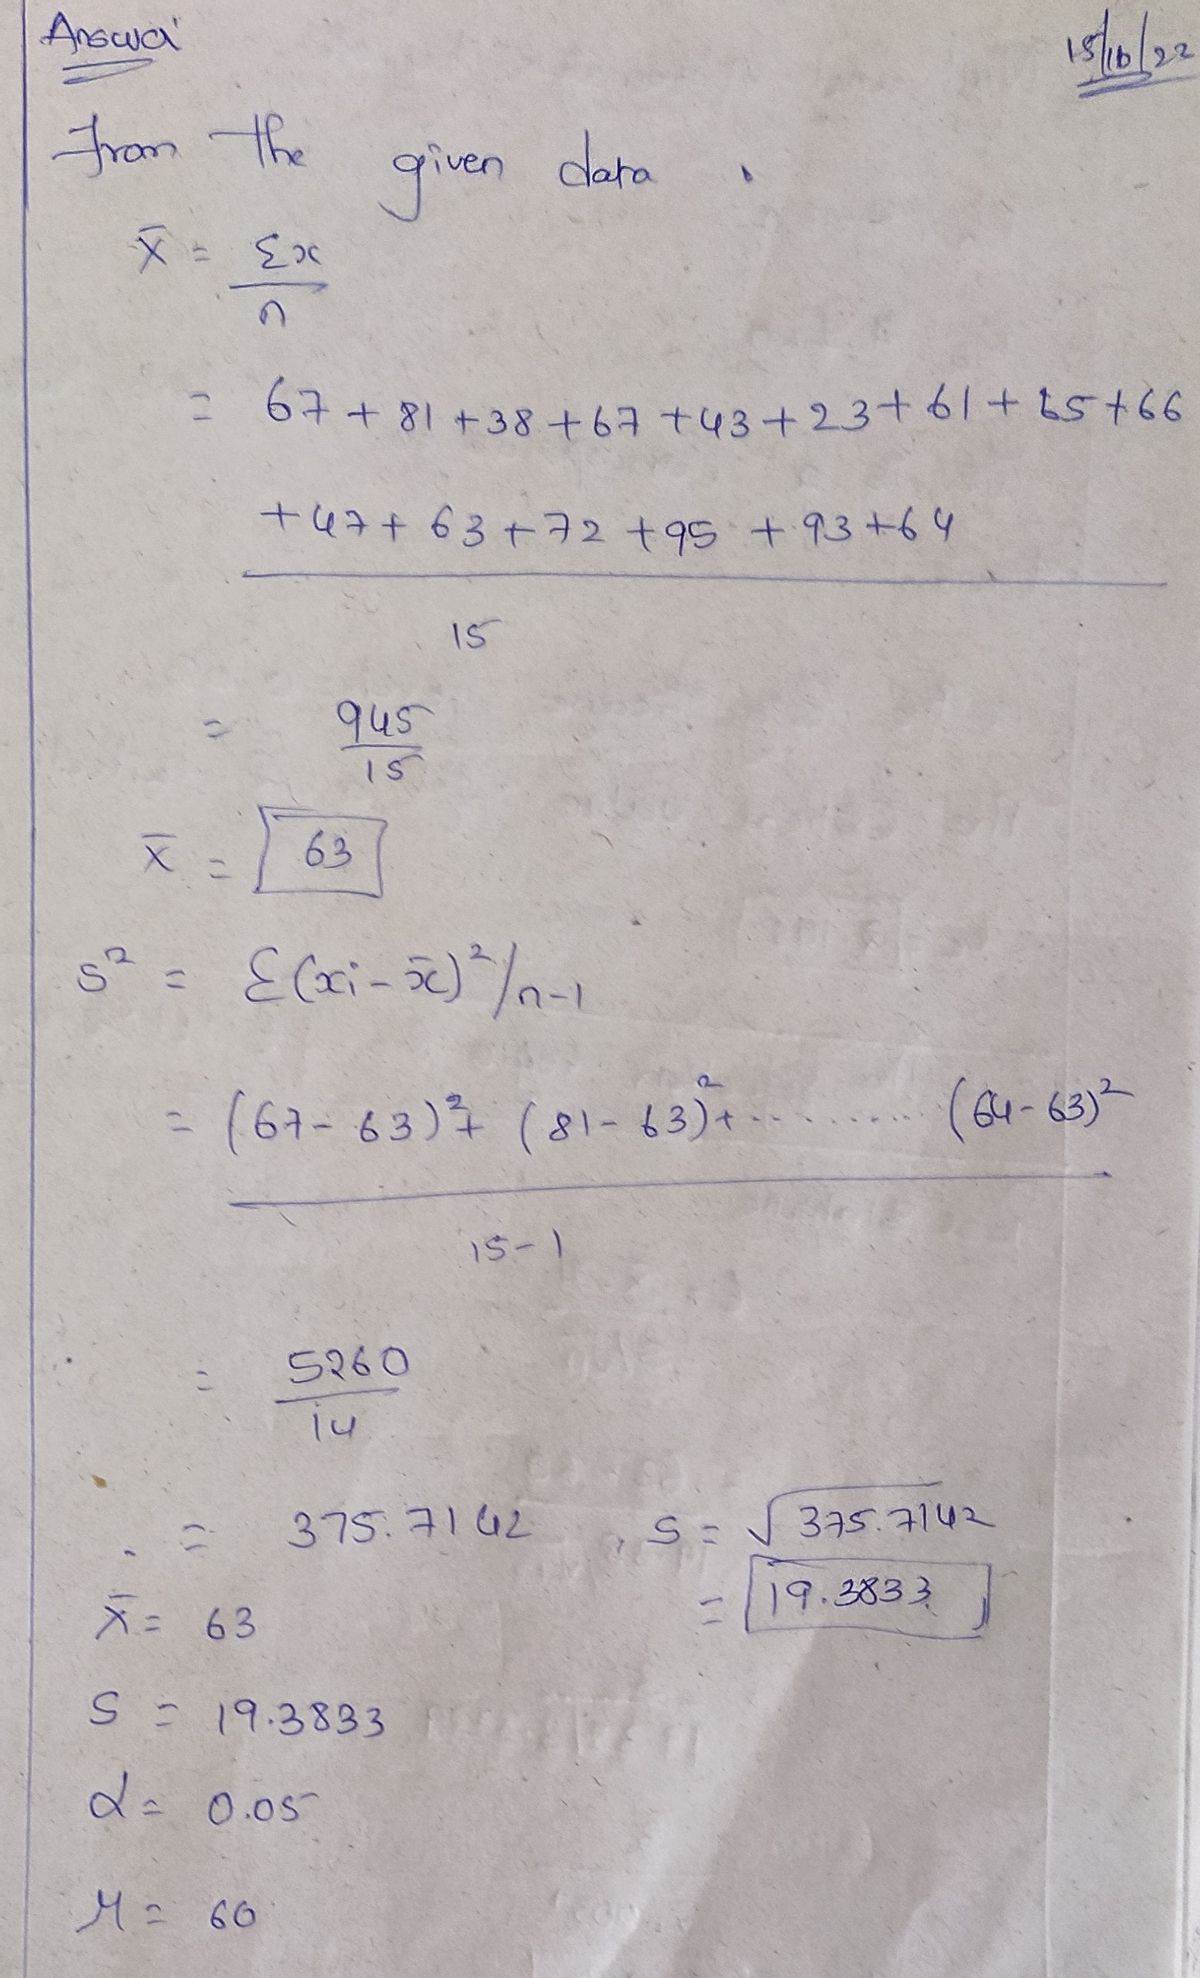 Answer
15/10/22
From the given data.
x̄ = Σx
n
= 67 + 81 + 38 + 67 + 43 + 23 + 61 + 65 + 66
+ 47 + 63 + 72 + 95 + 93 + 64
15
= 945
15
x̄ = 63
s² = Σ(xi - x̄)²/n-1
= (67 - 63)² + (81 - 63)² + .......... (64 - 63)²
15-1
= 5260
14
= 375.7142 , s = √375.7142
= 19.3833
x̄ = 63
s = 19.3833
α = 0.05
μ = 60